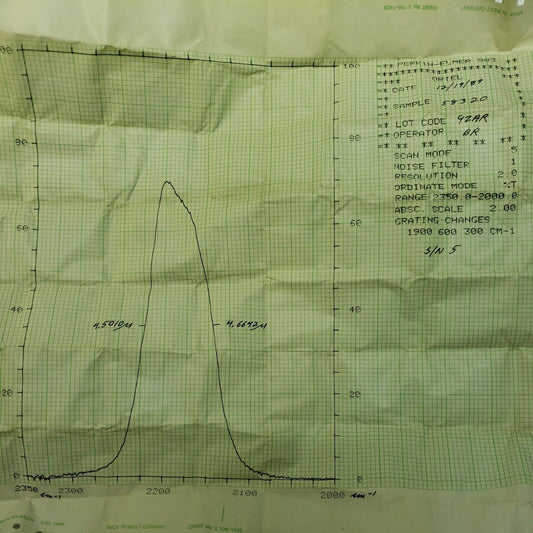 CHART No. L 199-1435
MADE IN WEST GERMANY
100
80
60
40
20
0
2350
cm-1
2300
2200
2100
2000
cm-1
4.5010µ
4.6643µ
100
80
60
40
20
0
=** PERKIN-ELMER 983 **
ORIEL
DATE 12/19/89
SAMPLE 58320
=* LOT CODE 9ZAR
=* OPERATOR BR
=* ** ** ** ** ** **
SCAN MODE 5
NOISE FILTER 1
RESOLUTION 2.0
ORDINATE MODE %T
RANGE 2350.0-2000.0
ABSC. SCALE 2.00
GRATING CHANGES
1900 600 300 CM-1
S/N 5
MADE IN WEST GERMANY
CHART No. L 199-1435